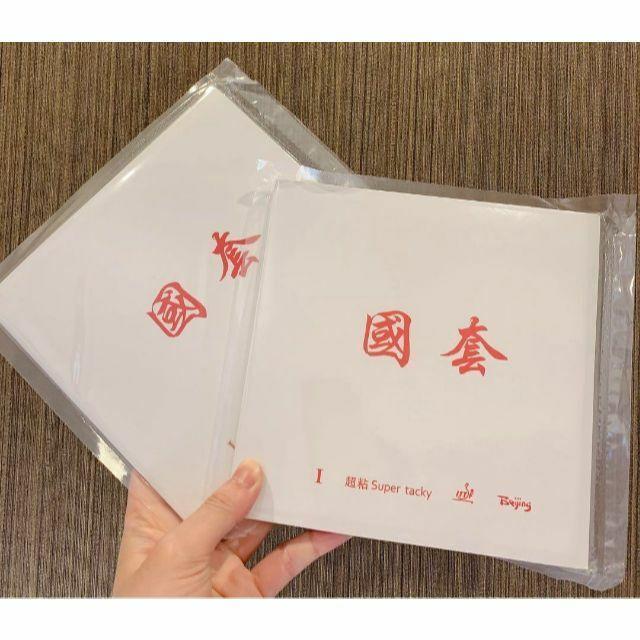 國套
國套
I 超粘 Super tacky ITTF Beijing